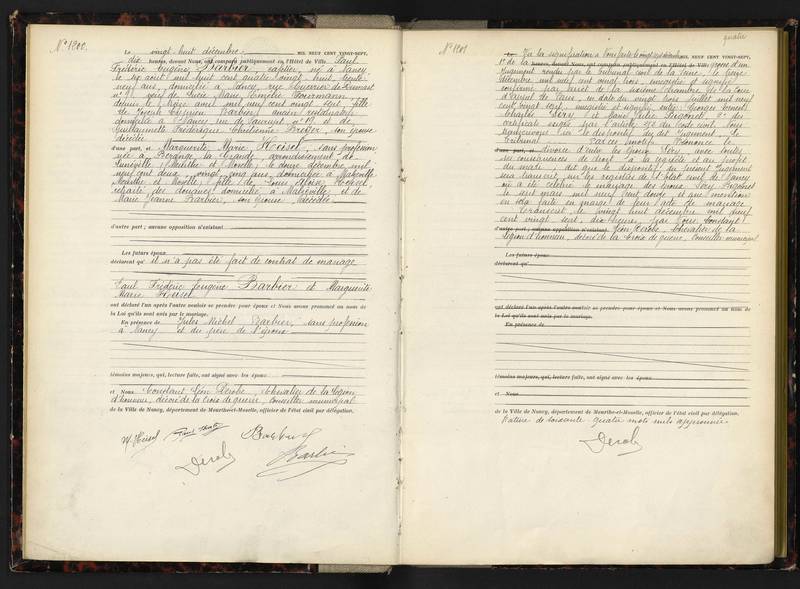 N° 1200.
Le vingt huit décembre MIL NEUF CENT VINGT-SEPT,
dix heures, devant Nous, ont comparu publiquement en l'Hôtel de Ville Paul
Frédéric Eugène Barbier, né à Nancy
le août mil huit cent quatre vingt huit, trente
neuf ans, domicilié à Nancy, rue
n° de Lucie Marie Amélie
depuis le avril mil neuf cent vingt sept, fils
de Joseph Barbier, ancien
domicilié à Nancy, n° 19, et de
Guillaumette Frédérique Christienne son épouse
décédée
d'une part, et Marguerite Marie Heisel, sans profession
née à la Grande, arrondissement de
Lunéville (Meurthe et Moselle) le douze décembre mil
neuf cent deux, vingt cinq ans, domiciliée à Malzéville
Meurthe et Moselle, fille de Louis Heisel,
retraité des Douanes, domicilié à Malzéville, et de
Marie Jeanne Barbier, son épouse, décédée
d'autre part; aucune opposition n'existant
Les futurs époux
déclarent qu' il n'a pas été fait de contrat de mariage
Paul Frédéric Eugène Barbier et Marguerite
Marie Heisel
ont déclaré l'un après l'autre vouloir se prendre pour époux et Nous avons prononcé au nom de
la Loi qu'ils sont unis par le mariage.
En présence de Jules Michel Barbier, sans profession
à Nancy et du père de l'épouse
témoins majeurs, qui, lecture faite, ont signé avec les époux
et Nous Constant Léon Derobe, Chevalier de la Légion
d'honneur, décoré de la Croix de guerre, Conseiller municipal
de la Ville de Nancy, département de Meurthe-et-Moselle, officier de l'état civil par délégation.
M. Heisel
Barbier
Derobe
Barbier
quatre
N° 1201
Le Vu la signification à Nous faite le vingt six décembre MIL NEUF CENT VINGT-SEPT,
1° de la heures, devant Nous, ont comparu publiquement en l'Hôtel de Ville grosse d'un
Jugement rendu par le Tribunal civil de la Seine, le treize
décembre mil neuf cent vingt trois, enregistré et signifié
confirmé par arrêt de la sixième Chambre de la Cour
d'Appel de Paris, en date du vingt trois Juillet mil neuf
cent vingt sept, enregistré et signifié entre: Georges
Charles Séry et Marie Julie 2° des
certificats exigés par l'article 252 du Code civil, Nous
transcrivons ici le dispositif du dit Jugement: Le
Tribunal Par ces motifs Prononce le
d'une part, et divorce d'entre les époux Séry, avec toutes
ses conséquences de droit à la requête et au profit
du mari, dit que le dispositif du présent Jugement
sera transcrit sur les registres de l'Etat civil de Nancy
où a été célébré le mariage des époux Séry
le sept mars mil neuf cent douze, et que mention
en sera faite en marge de leur acte de mariage
Transcrit, le vingt huit décembre mil neuf
cent vingt sept, dix heures, par Nous Constant
d'autre part; aucune opposition n'existant Léon Derobe, Chevalier de la
Légion d'honneur, décoré de la Croix de guerre, Conseiller municipal
Les futurs époux
déclarent qu'
ont déclaré l'un après l'autre vouloir se prendre pour époux et Nous avons prononcé au nom de
la Loi qu'ils sont unis par le mariage.
En présence de
témoins majeurs, qui, lecture faite, ont signé avec les époux
et Nous
de la Ville de Nancy, département de Meurthe-et-Moselle, officier de l'état civil par délégation.
Rature de soixante quatre mots nuls approuvée
Derobe